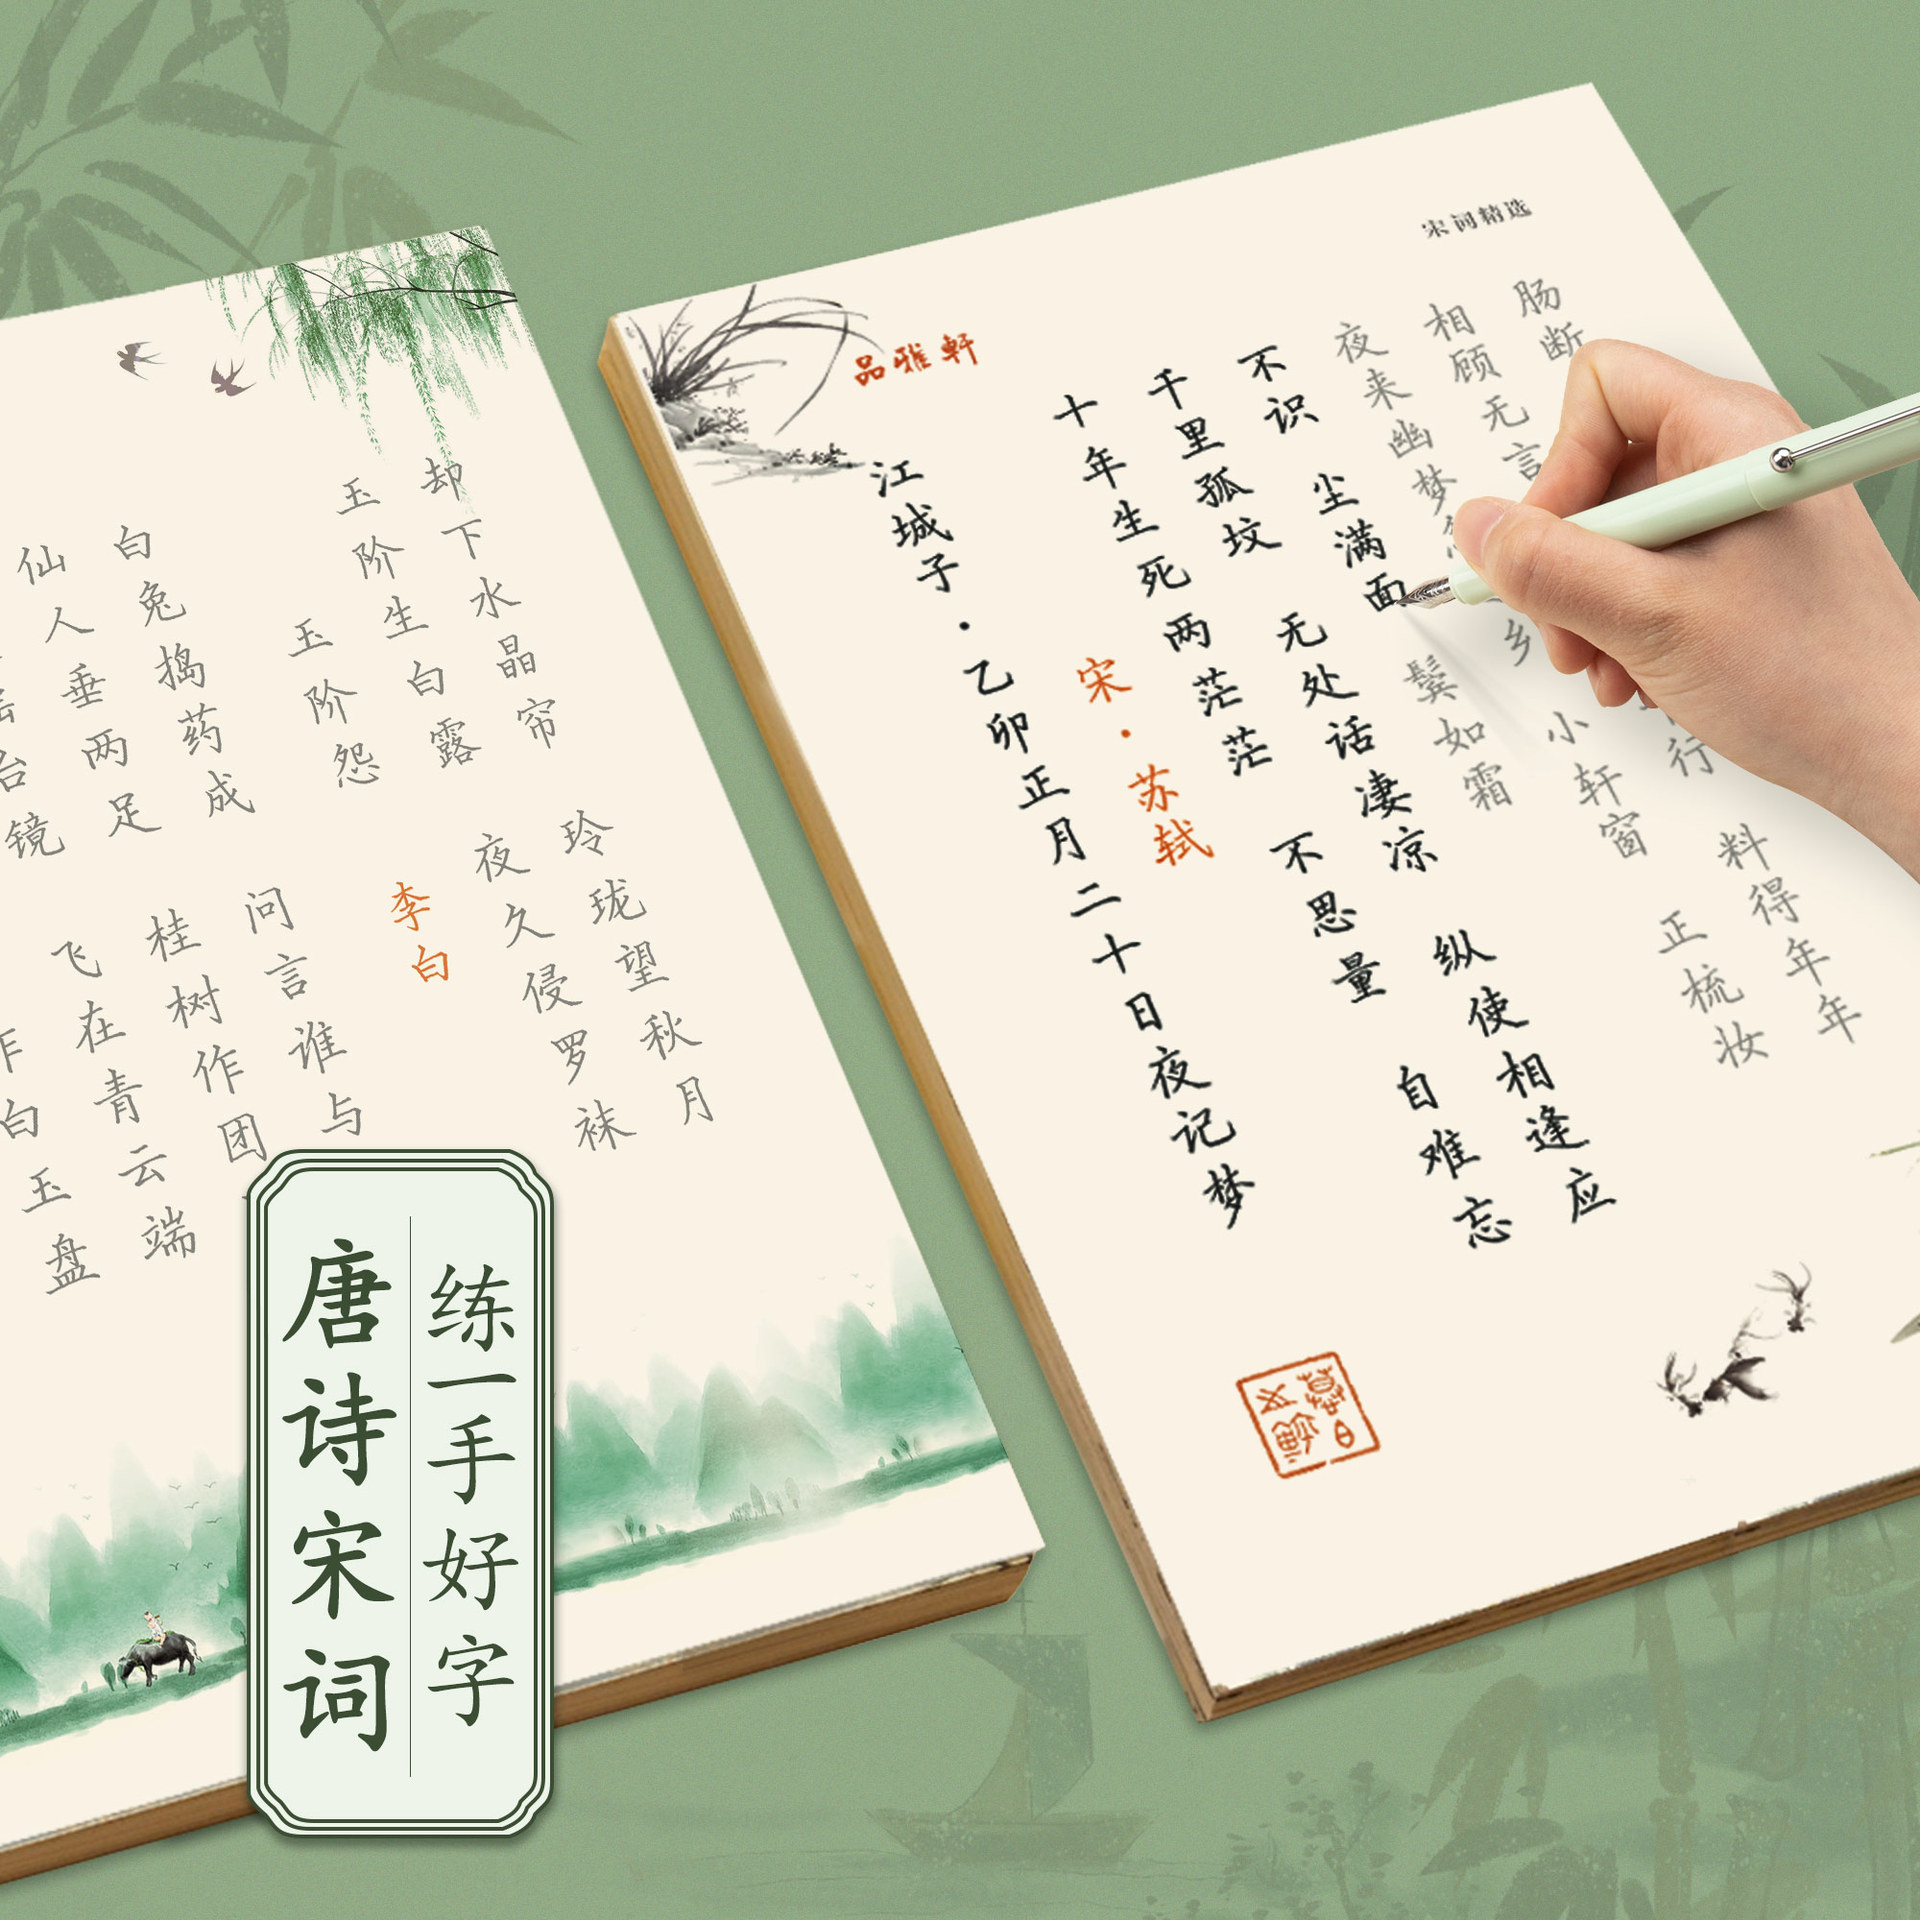 白玉盘
台镜 飞在青云端
仙人垂两足 桂树作团
白兔捣药成 问言谁与
玉阶怨
李白
玉阶生白露 夜久侵罗袜
却下水晶帘 玲珑望秋月
宋词精选
品雅軒
江城子·乙卯正月二十日夜记梦
宋·苏轼
十年生死两茫茫 不思量 自难忘
千里孤坟 无处话凄凉 纵使相逢应
不识 尘满面 鬓如霜
夜来幽梦 乡 小轩窗 正梳妆
相顾无言 行 料得年年
肠断
练一手好字
唐诗宋词